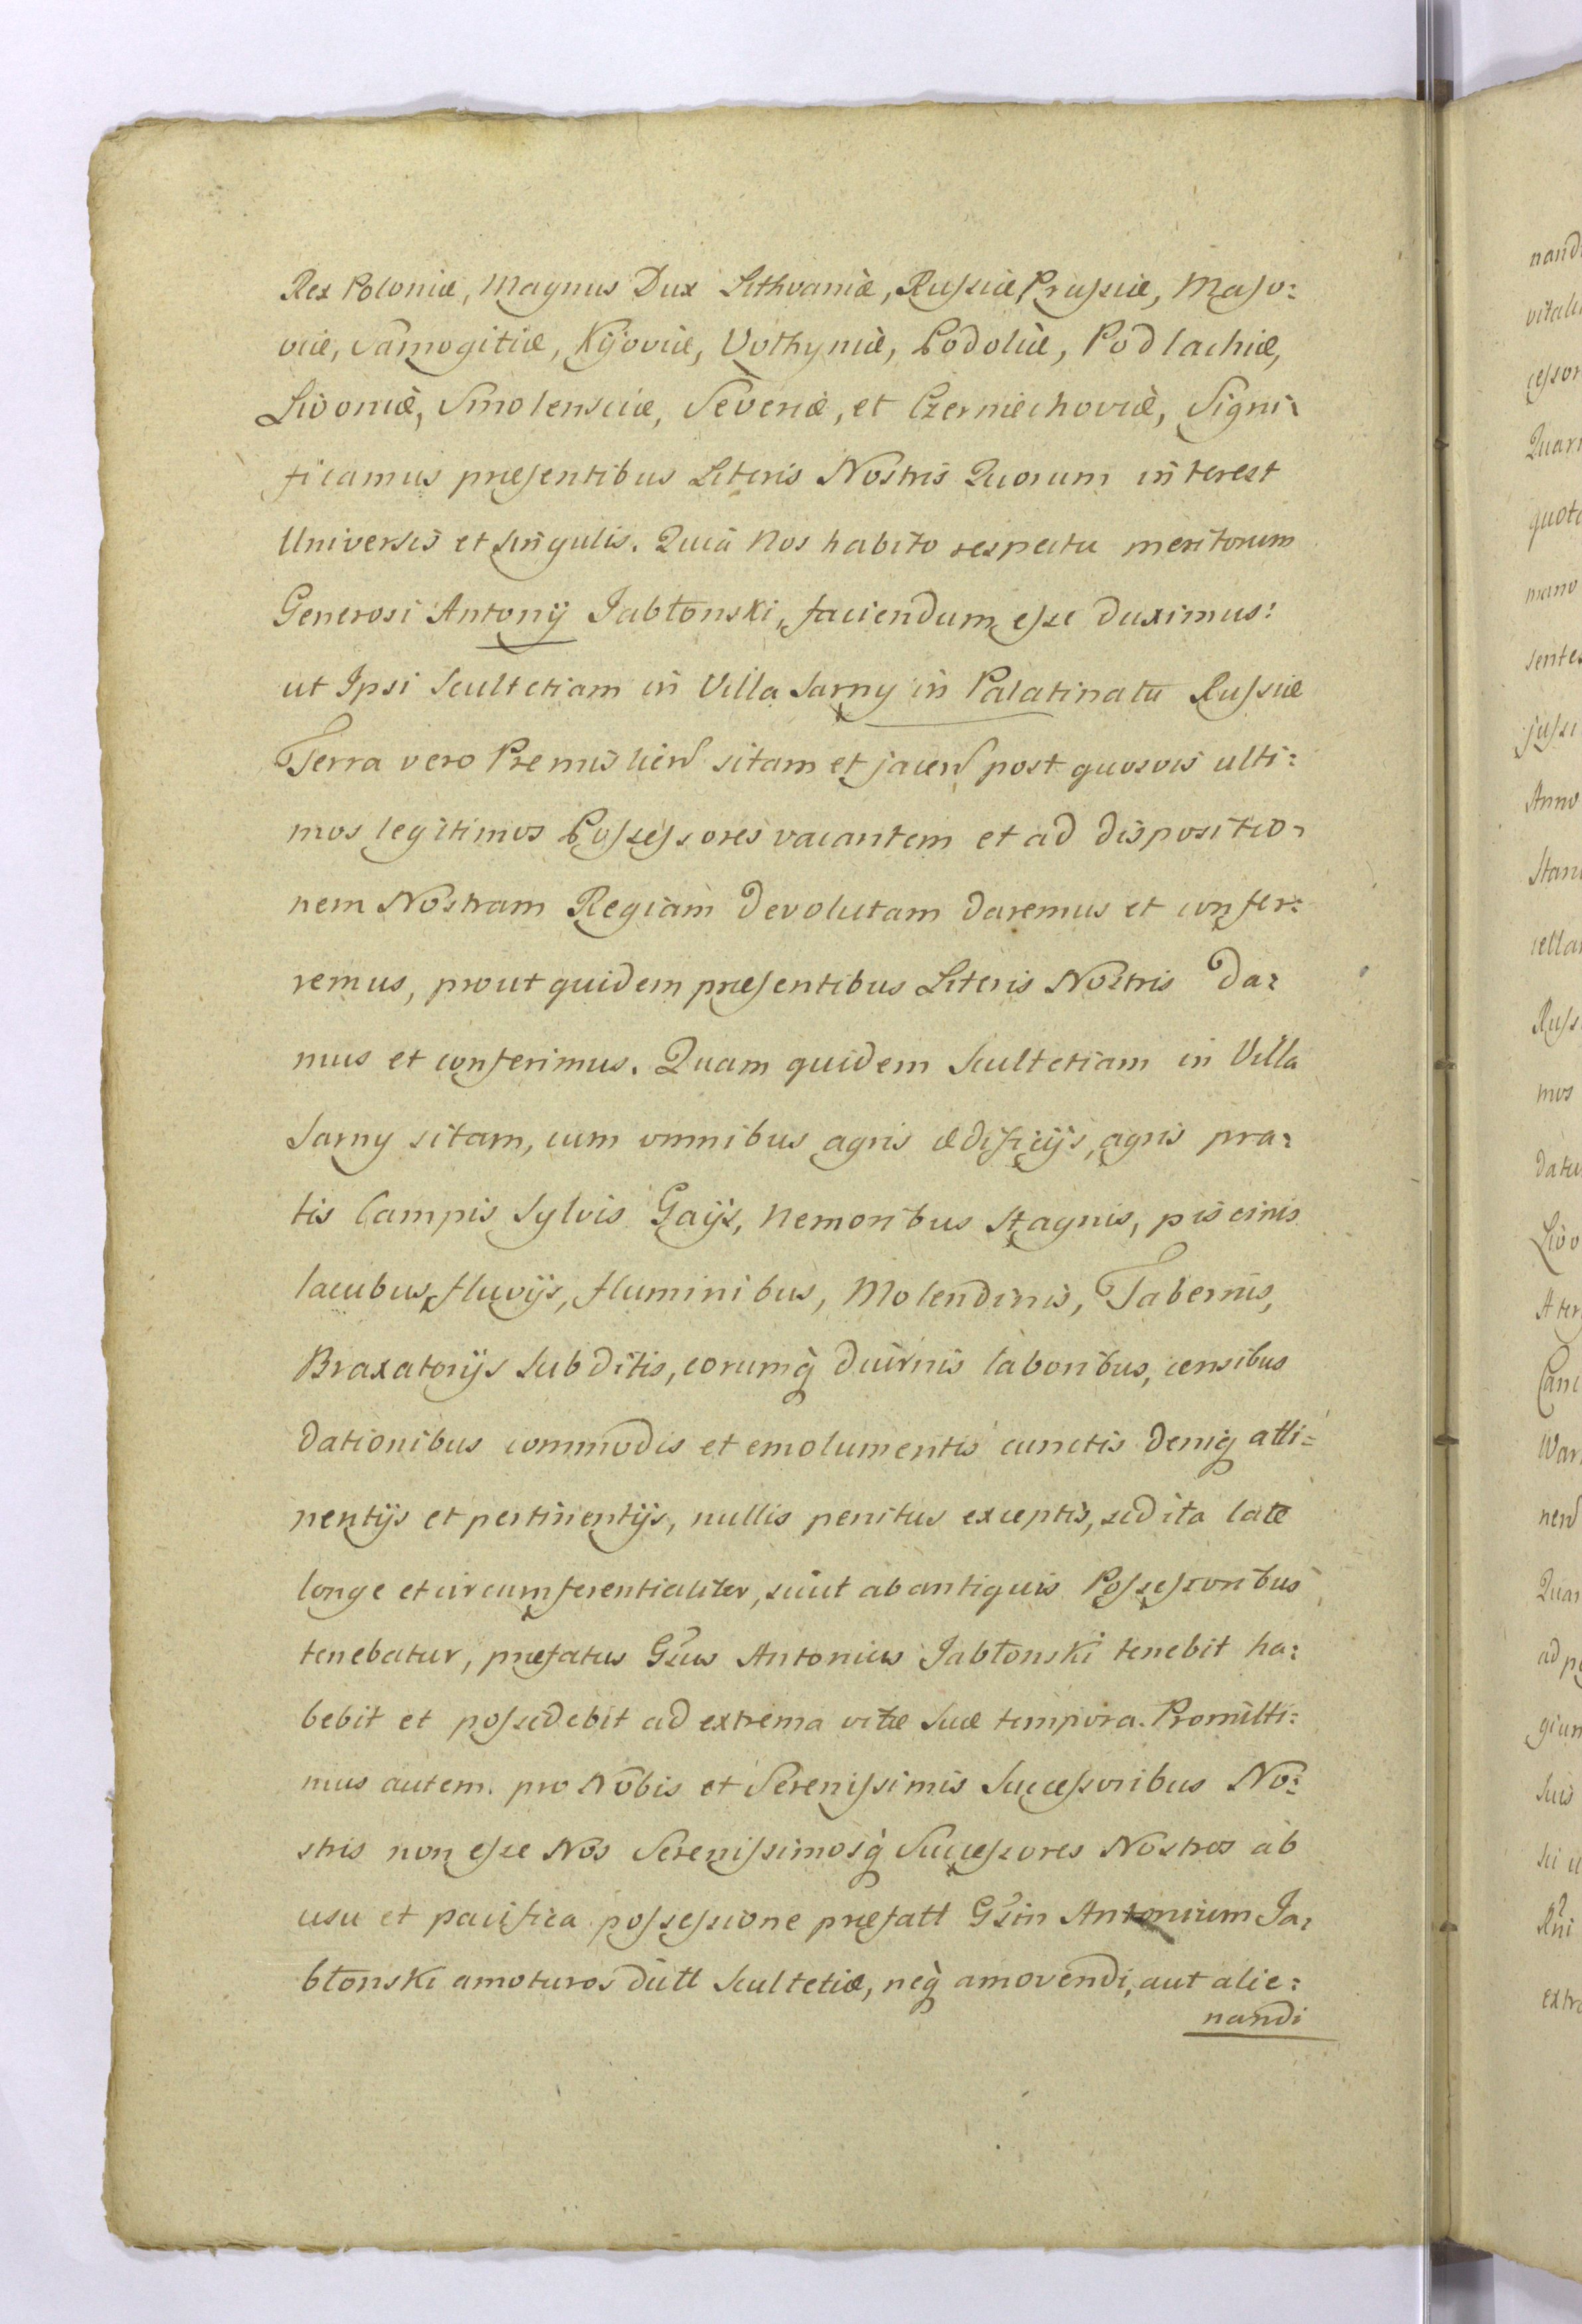 Rex Poloniæ, Magnus Dux Lithvaniæ, Russiæ Prussiæ, Maso:
viæ, Samogitiæ, Kijoviæ, Volhyniæ, Podoliæ, Podlachiæ,
Livoniæ, Smolensciæ, Severiæ, et Czerniechoviæ, Signi:
ficamus præsentibus Literis Nostris Quorum interest
Universis et singulis. Quia Nos habito respectu meritorum
Generosi Antonij Jabłonski, faciendum esse duximus:
ut Ipsi Scultetiam in Villa Sarny in Palatinatu Russiæ
Terra vero Premislien sitam et jacen post quosvis ulti:
mos legitimos Possessores vacantem et ad dispositio:
nem Nostram Regiam devolutam daremus et confer:
remus, prout quidem præsentibus Literis Nostris da:
mus et conferimus. Quam quidem Scultetiam in Villa
Sarny sitam, cum omnibus agris ædificijs, agris pra:
tis Campis Sylvis Gaijs, Nemoribus Stagnis, piscinis
lacubus, fluvijs, fluminibus, Molendinis, Tabernis,
Braxatorijs Subditis, eorumq̀ diurnis laboribus, censibus
dationibus commodis et emolumentis cunctis deniq̀ atti=
nentijs et pertinentijs, nullis penitus exceptis, sed ita late
longe et circumferentialiter, sicut ab antiquis Possessoribus
tenebatur, præfatus Gsus Antonius Jabłonski tenebit ha:
bebit et possidebit ad extrema vitæ suæ tempora. Promitti:
mus autem pro Nobis et Serenissimis Successoribus No:
stris non esse Nos Serenissimosq̀ Successores Nostros ab
usu et pacifica possessione præfatt Gsin Antonium Ja:
błonski amoturos dictt Scultetiæ, neq̀ amovendi, aut alie:
nandi
nand
vitali
cessor
Quar
quot
manu
sente
jussi
Anno
Stan
cella
Russ
mos
datu
Livo
Ater
Canc
War
nen
Quar
ad p
giun
Suis
sci
Rni
extr